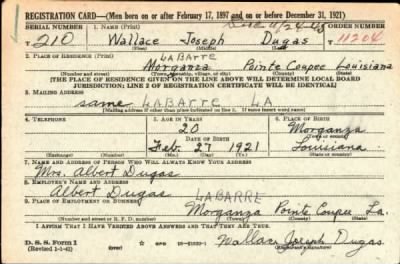 REGISTRATION CARD—(Men born on or after February 17, 1897 and on or before December 31, 1921)
SERIAL NUMBER 1. NAME (Print) ORDER NUMBER
T 210 Wallace Joseph Dugas 11204
(First) (Middle) (Last)
2. PLACE OF RESIDENCE (Print) LABARRE
Morganza Pointe Coupee Louisiana
(Number and street) (Town, township, village, or city) (County) (State)
[THE PLACE OF RESIDENCE GIVEN ON THE LINE ABOVE WILL DETERMINE LOCAL BOARD
JURISDICTION; LINE 2 OF REGISTRATION CERTIFICATE WILL BE IDENTICAL]
3. MAILING ADDRESS
same LABARRE LA
[Mailing address if other than place indicated on line 2. If same insert word same]
4. TELEPHONE 5. AGE IN YEARS 6. PLACE OF BIRTH
20 Morganza
DATE OF BIRTH (Town or county)
Feb. 27 1921 Louisiana
(Exchange) (Number) (Mo.) (Day) (Yr.) (State or country)
7. NAME AND ADDRESS OF PERSON WHO WILL ALWAYS KNOW YOUR ADDRESS
Mrs. Albert Dugas
8. EMPLOYER'S NAME AND ADDRESS
Albert Dugas LABARRE
9. PLACE OF EMPLOYMENT OR BUSINESS
Morganza Pointe Coupee La.
(Number and street or R. F. D. number) (Town) (County) (State)
I AFFIRM THAT I HAVE VERIFIED ABOVE ANSWERS AND THAT THEY ARE TRUE.
D. S. S. Form 1 GPO Wallace Joseph Dugas
(Revised 1-1-42) (Registrant's signature)